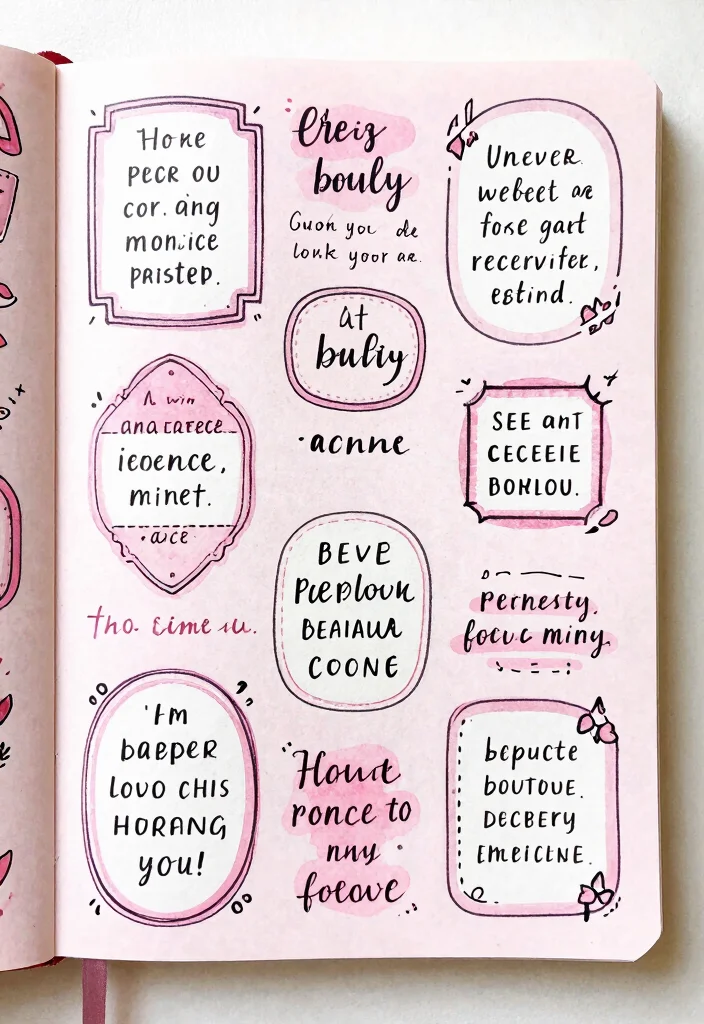 Hoke
pecr ou
cor. ang
monice
pristep.
Creiz
bouly
Guoh you de
louk yoor ae.
Unever
webeet ae
foxe gart
recervifer,
estind.
at
buliy
acnne
A win
ana carece
ieoence,
minet.
ace
SEE anT
CECEEIE
BOHLOU.
BEVE
PeePlouk
BEAIAUA
COONE
tho. eime iu.
Pernesty,
focuc miny.
I'm
baeper
Lovo chis
HORANG
you!
Hount
ponce to
nny
foeove
bepucte
boutoue.
Decbery
Emeicine.